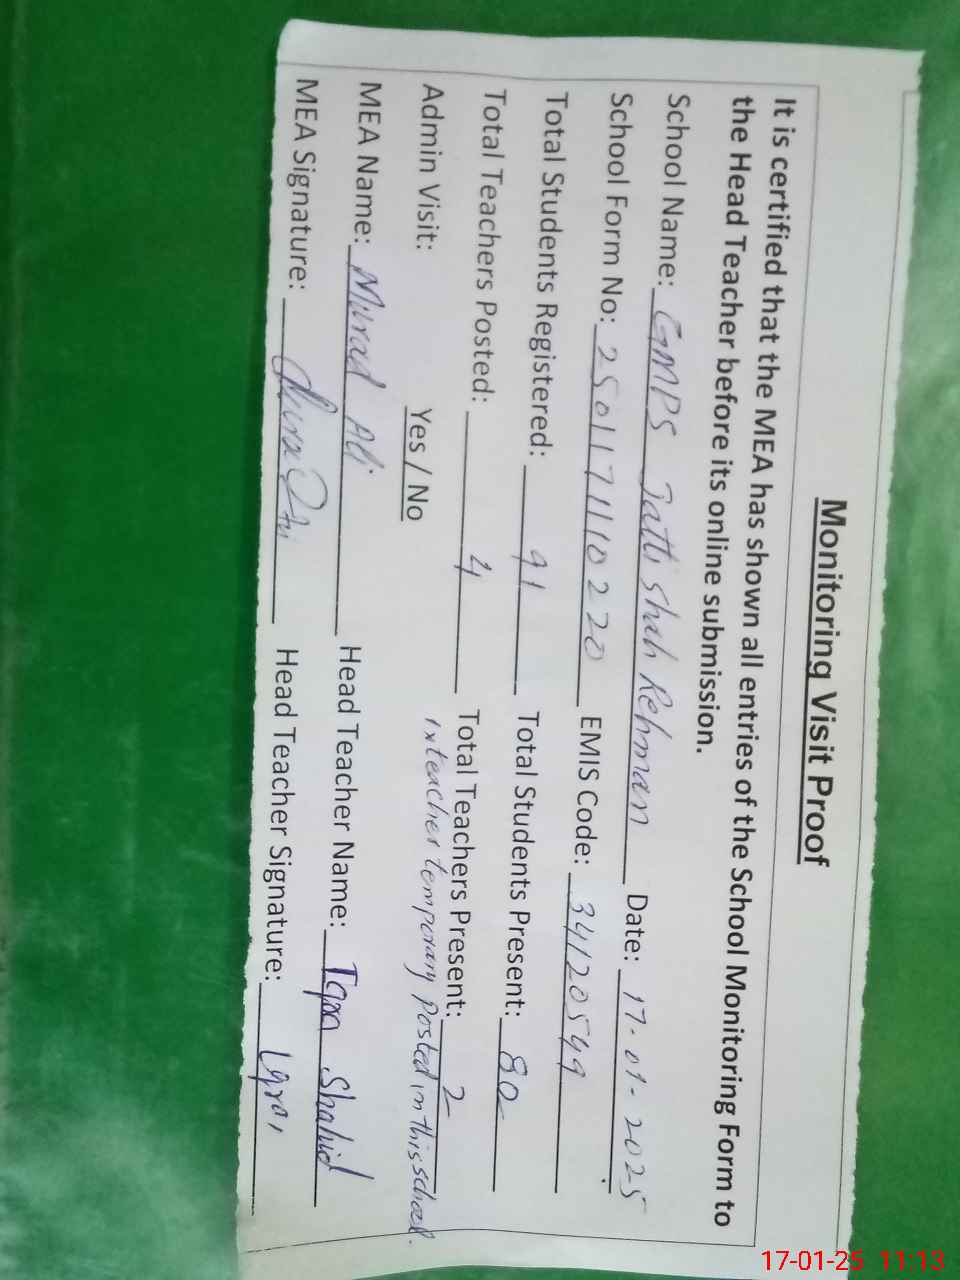 Monitoring Visit Proof
It is certified that the MEA has shown all entries of the School Monitoring Form to
the Head Teacher before its online submission.
School Name: GMPS Jatti Shah Rehman Date: 17-01-2025
School Form No: 2501171110220 EMIS Code: 34120549
Total Students Registered: 91 Total Students Present: 80
Total Teachers Posted: 4 Total Teachers Present: 2
Admin Visit: Yes / No 1xteacher temporary Posted in this school.
MEA Name: Murad Ali Head Teacher Name: Iqra Shahid
MEA Signature: Head Teacher Signature: Iqra
17-01-25 11:13